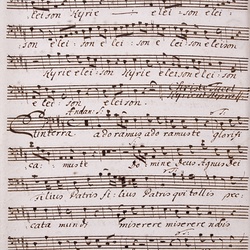 leison Kyrie elei son elei
son elei son elei son e leison eleison
Kyrie elei son Kyrie eleison elei son
e lei son eleison.
Andan:
in terra adoramus adoramuste glorifi
ca muste Domine Deus Agnus Dei
filius Patris filius Patris qui tollis pec
cata mundi miserere miserere nobis